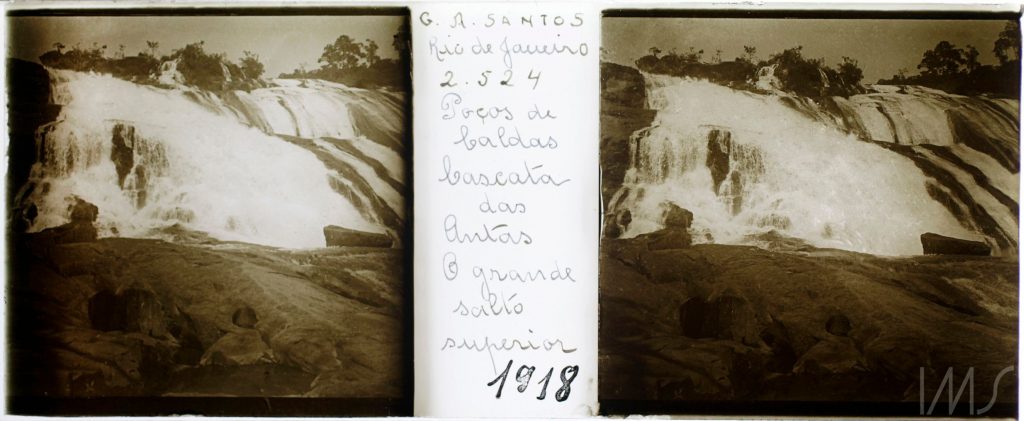 G. A. SANTOS
Rio de Janeiro
2.524
Poços de
Caldas
Cascata
das
Antas
O grande
salto
superior
1918
IMS